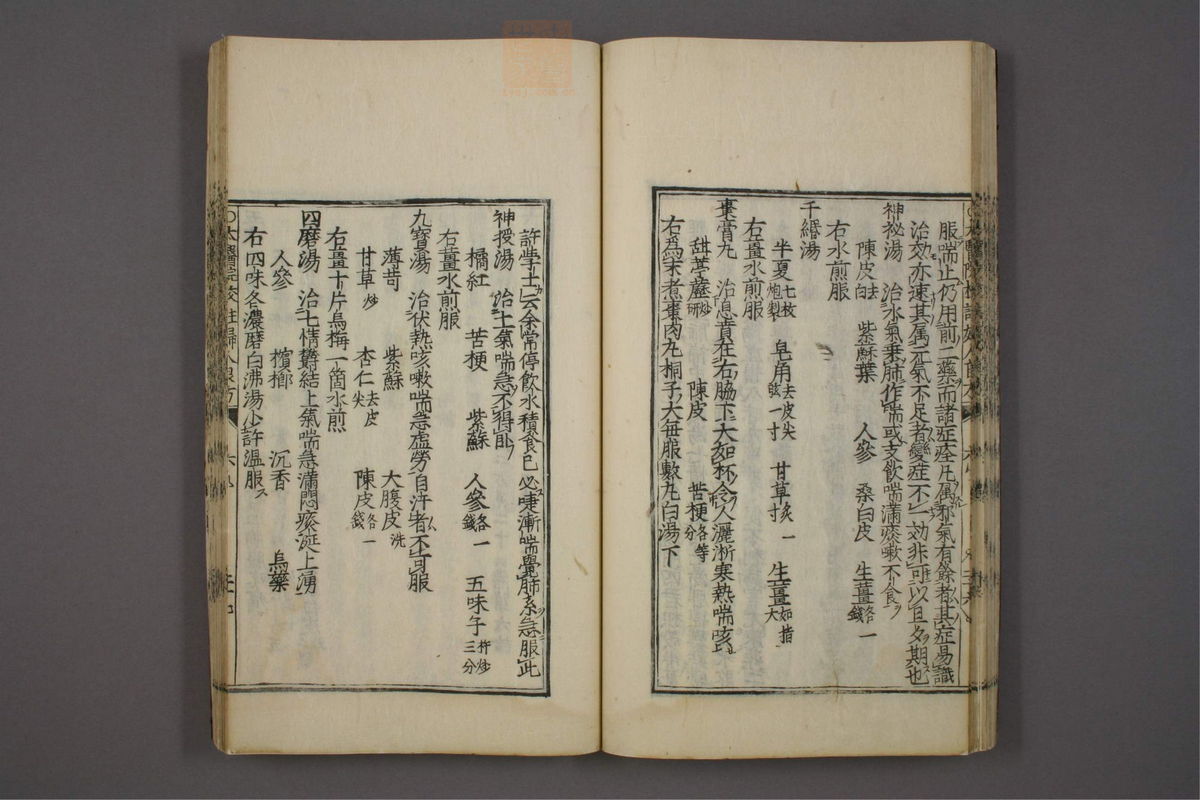 服喘止仍用前二藥而諸症痊凡属邪氣有餘者其症易識
治効亦速其属元氣不足者變症不一効非可以旦夕期也
神祕湯 治水氣乗肺作喘或支飲喘滿痰嗽不食
陳皮去白 紫蘇葉 人參 桑白皮 生薑各一錢
右水煎服
千緡湯
半夏七枚炮製 皂角去皮尖弦一寸 甘草炙一 生薑如指大
右薑水煎服
棗膏丸 治息賁在右脇下大如杯令人灑淅寒熱喘咳
甜葶藶炒研 陳皮 苦梗各等分
右為末煮棗肉丸桐子大毎服數丸白湯下
許學士云余常停飲水積食已必嚏漸喘覺肺系急服此
神授湯 治上氣喘急不得卧
橘紅 苦梗 紫蘇 人參各一錢 五味子杵炒三分
右薑水煎服
九寶湯 治伏熱咳嗽喘急虚勞自汗者不可服
薄苛 紫蘇 大腹皮洗
甘草炒 杏仁去皮尖 陳皮各一錢
右薑十片烏梅一箇水煎
四磨湯 治七情欝結上氣喘急滿悶痰涎上湧
人參 檳榔 沉香 烏藥
右四味各濃磨白沸湯少許溫服